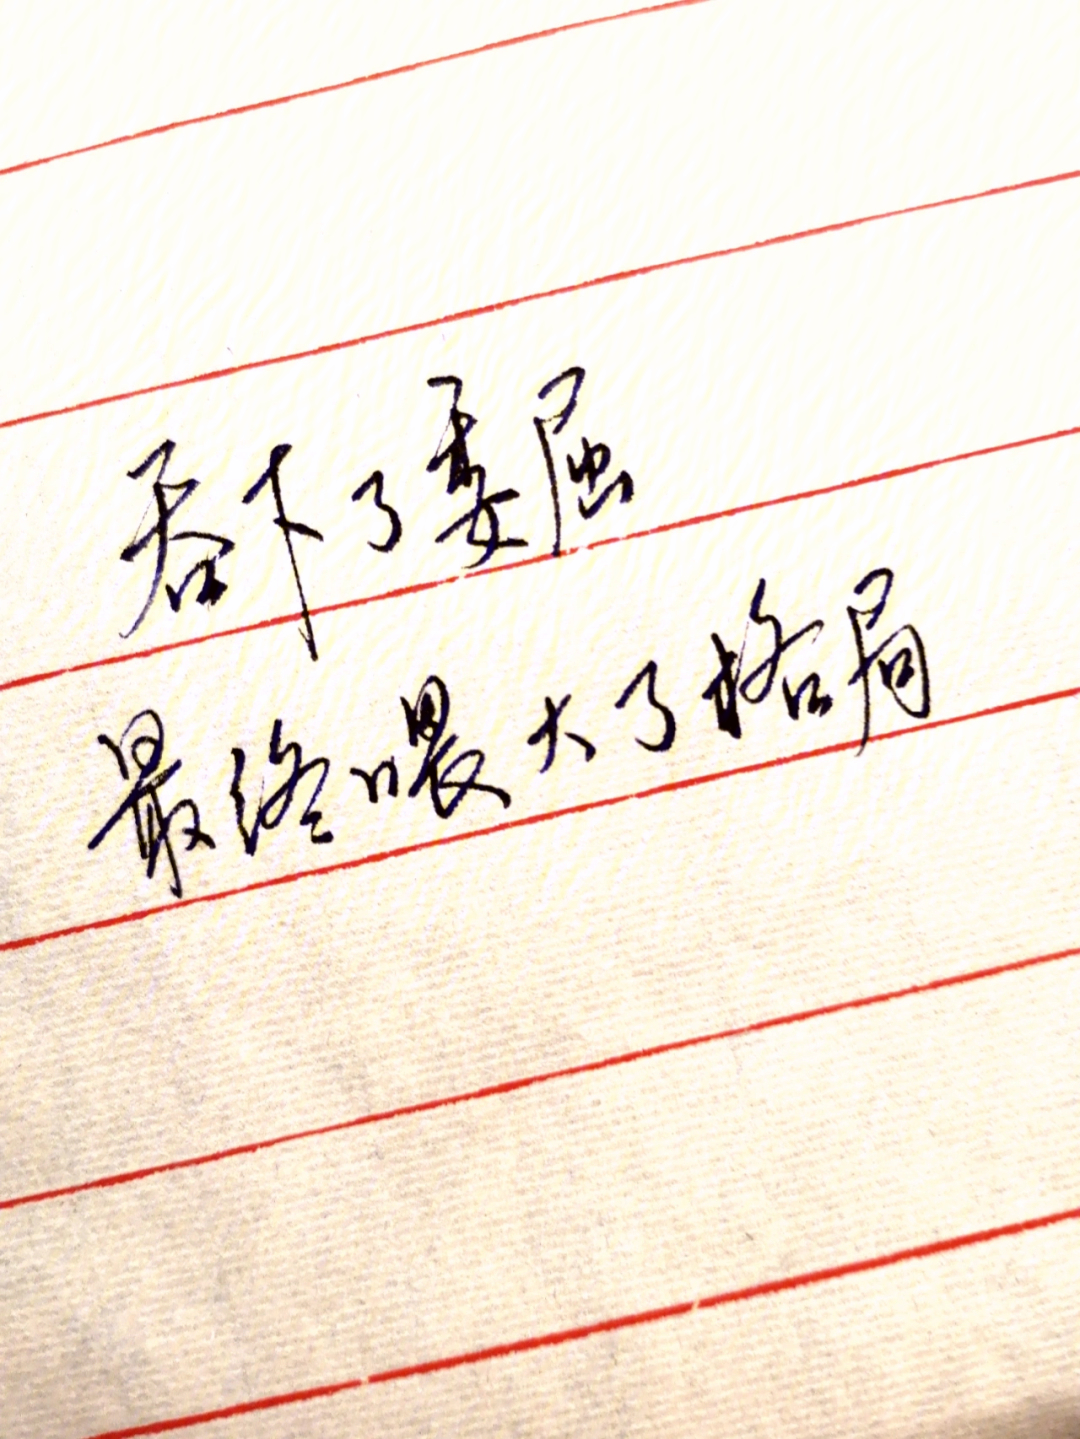 吞下了委屈
最终喂大了格局